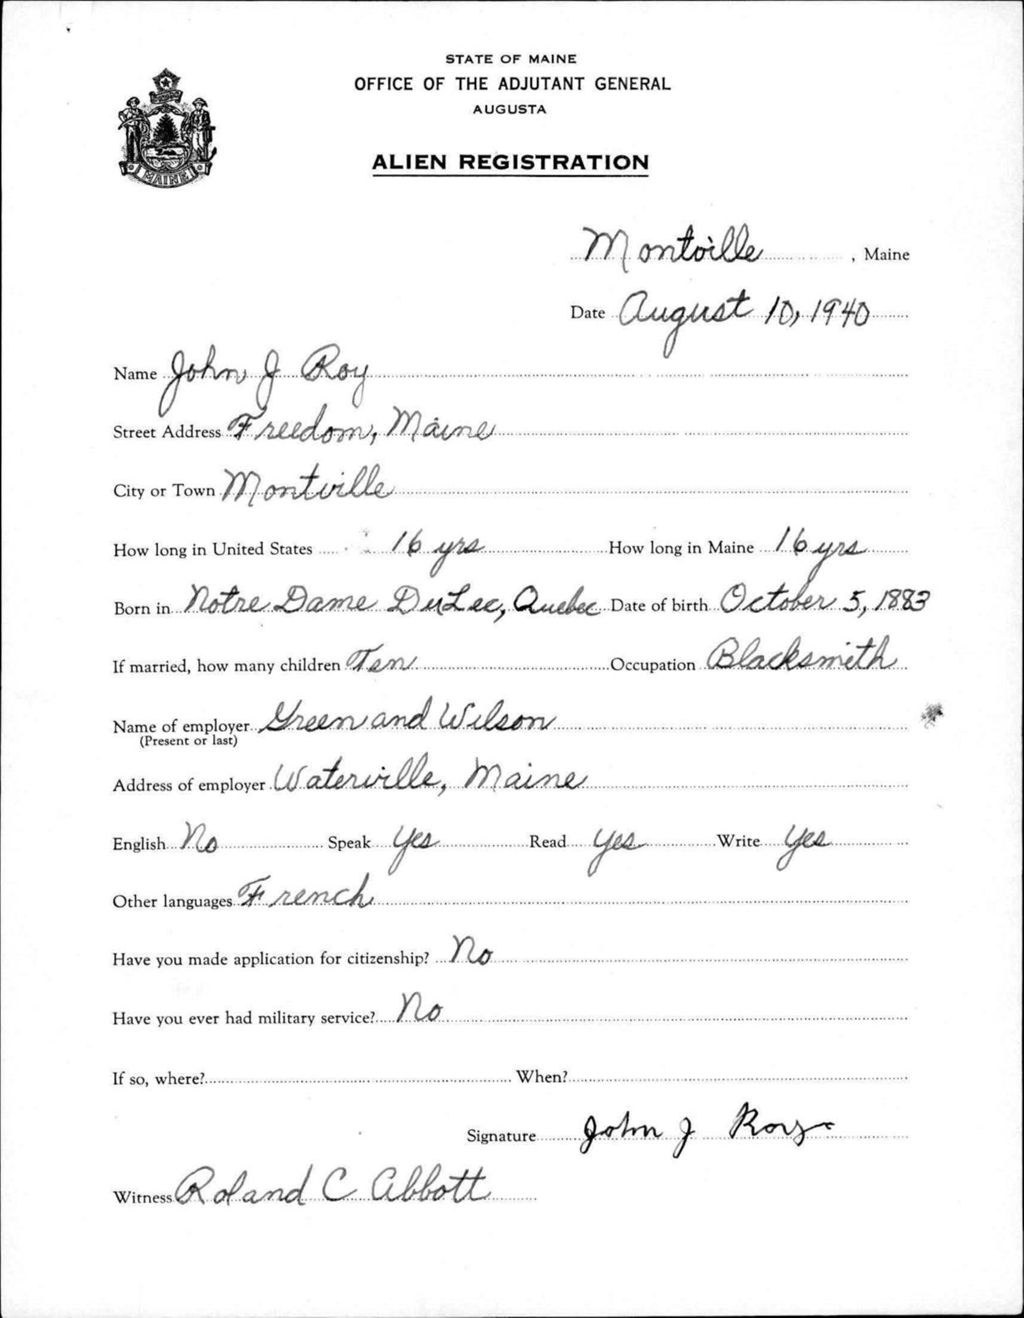 STATE OF MAINE
OFFICE OF THE ADJUTANT GENERAL
AUGUSTA
ALIEN REGISTRATION
MAINE
Montville, Maine
Date August 10, 1940
Name John J Roy
Street Address Freedom, Maine
City or Town Montville
How long in United States 16 yrs How long in Maine 16 yrs
Born in Notre Dame Du Lec, Quebec Date of birth October 5, 1883
If married, how many children Ten Occupation Blacksmith
Name of employer Green and Wilson
(Present or last)
Address of employer Waterville, Maine
English No Speak Yes Read Yes Write Yes
Other languages French
Have you made application for citizenship? No
Have you ever had military service? No
If so, where? When?
Signature John J Roy
Witness Roland C Abbott